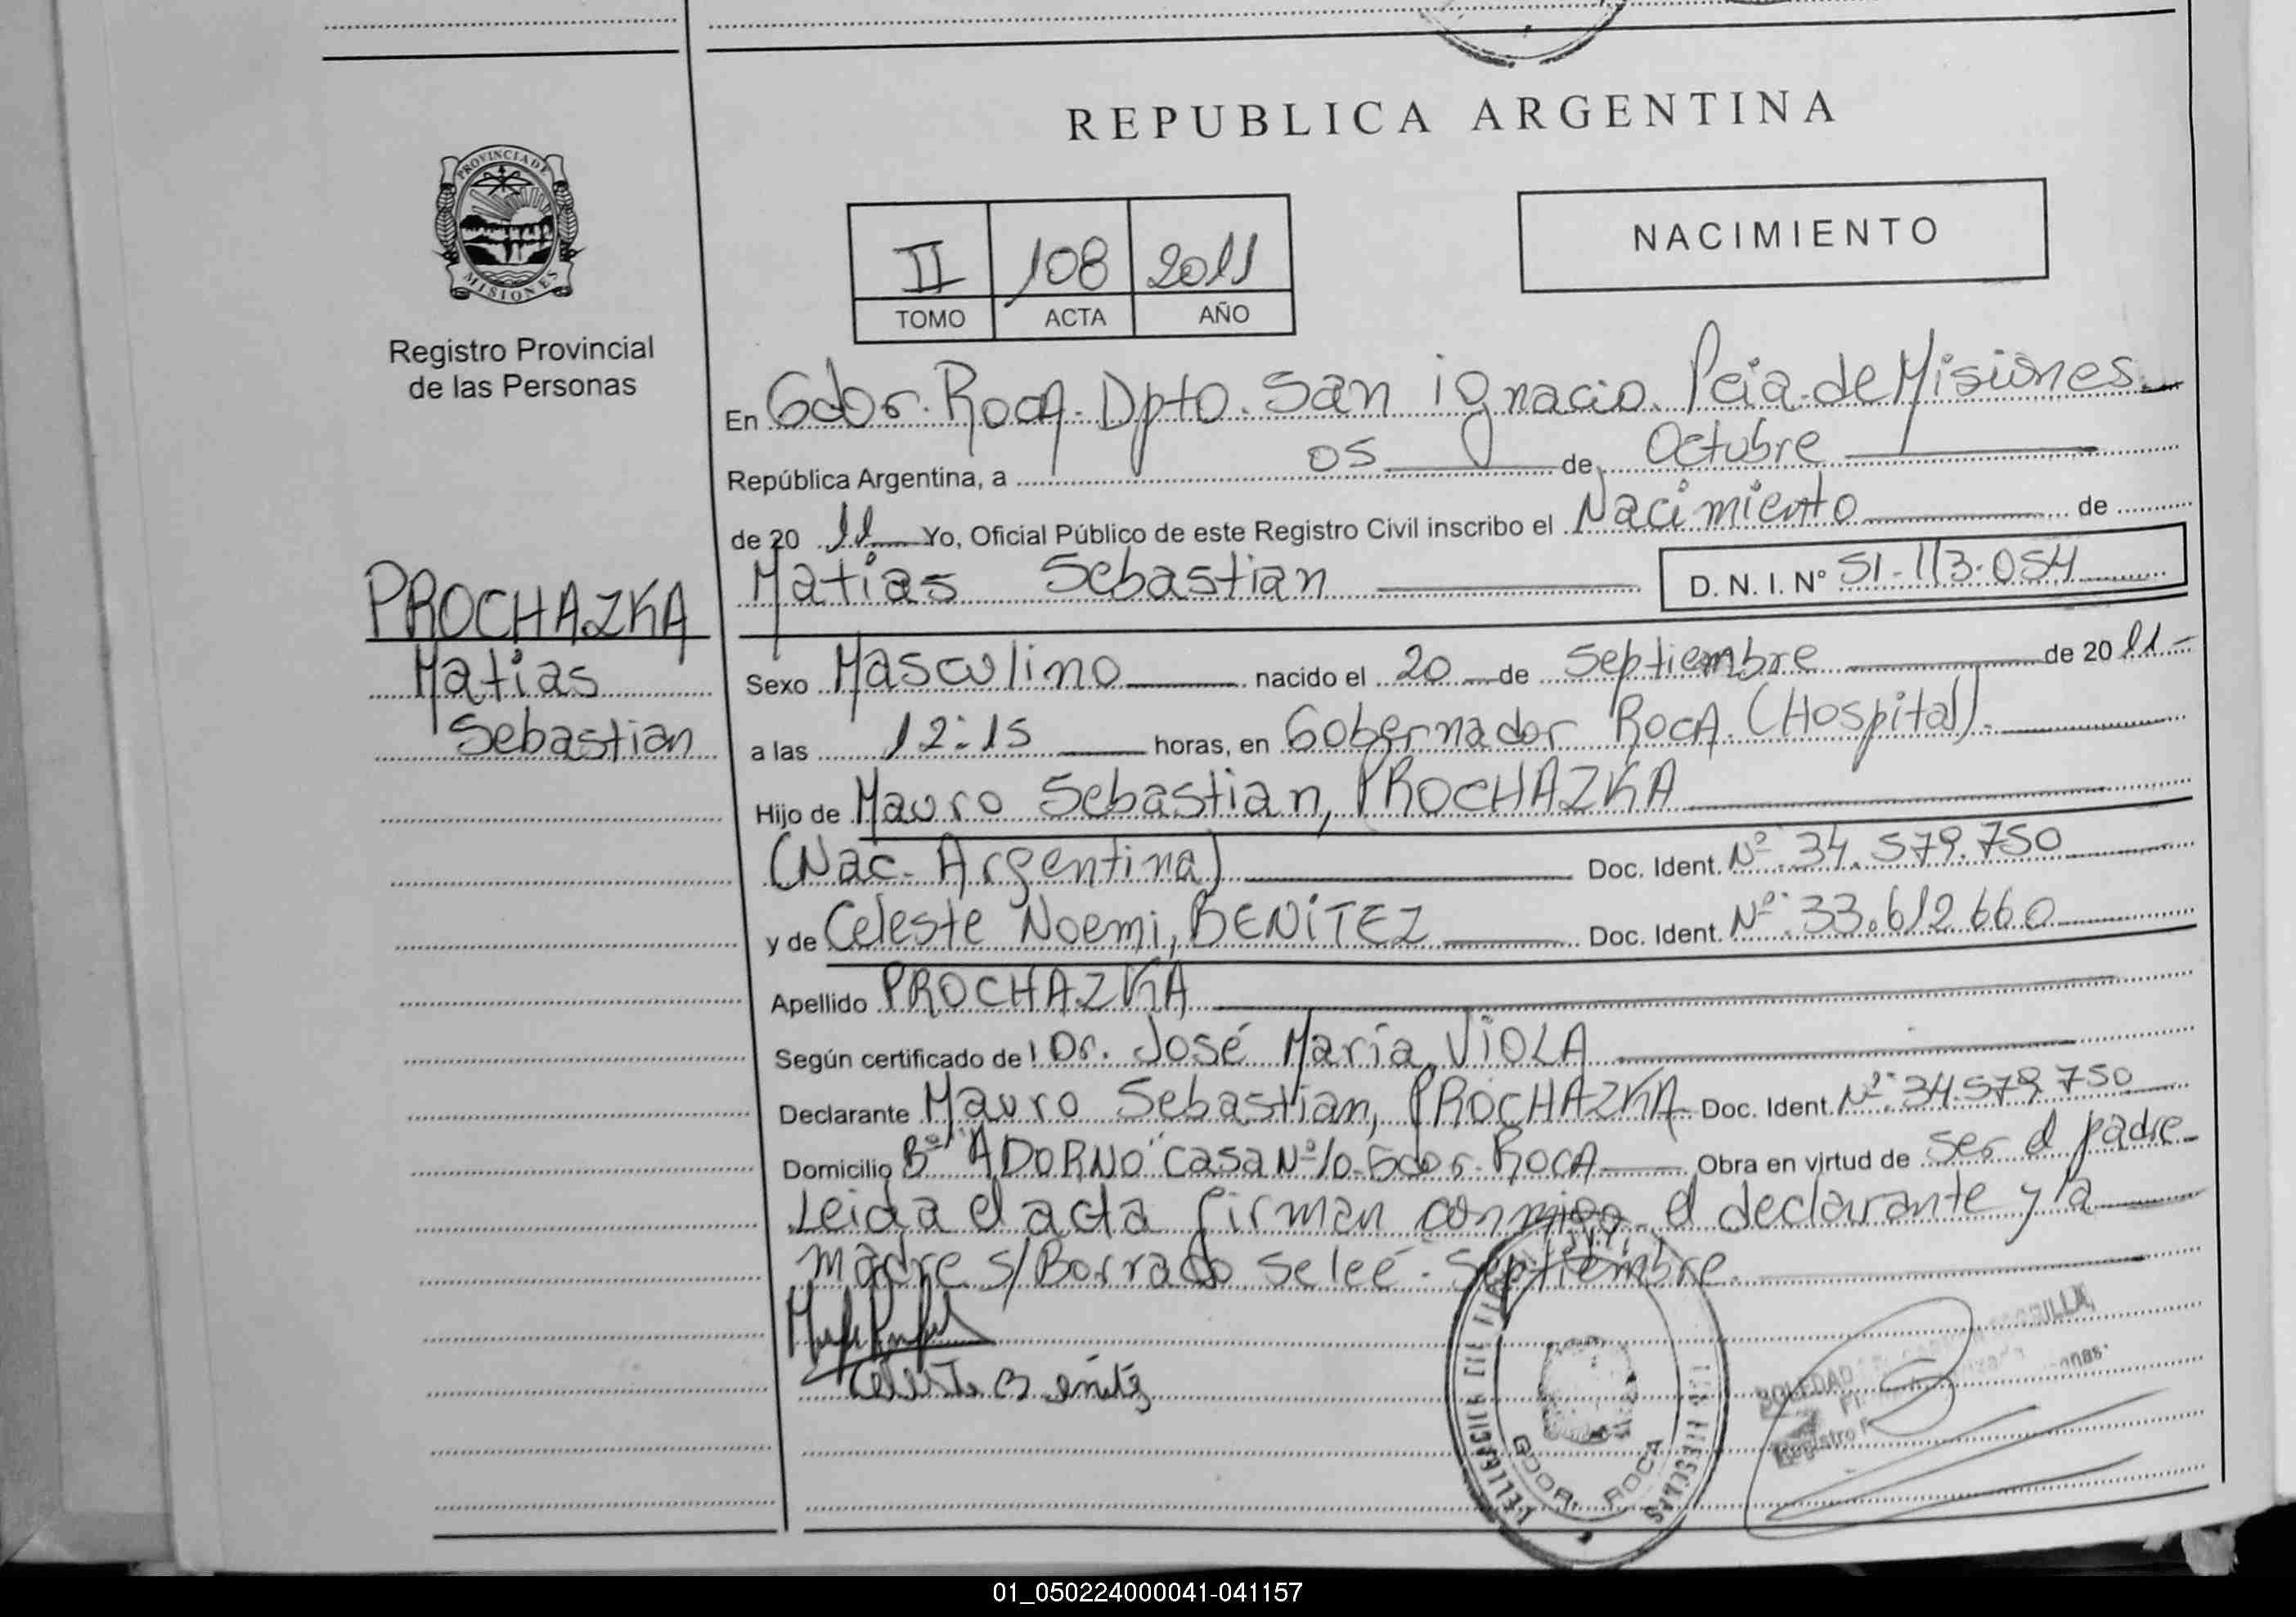 REPUBLICA ARGENTINA
PROVINCIA DE
MISIONES
Registro Provincial
de las Personas
II 108 2011
TOMO ACTA AÑO
NACIMIENTO
En Gdor. Roca. Dpto. San ignacio. Pcia. de Misiones.
República Argentina, a 05 de Octubre
de 20 11 Yo, Oficial Público de este Registro Civil inscribo el Nacimiento de
Matias Sebastian D. N. I. N° 51-113-054
PROCHAZKA
Matias
Sebastian
Sexo Masculino nacido el 20 de Septiembre de 20 11-
a las 12:15 horas, en Gobernador Roca. (Hospital).
Hijo de Mauro Sebastian, PROCHAZKA
(Nac. Argentina) Doc. Ident. Nº. 34.579.750
y de Celeste Noemi, BENiTEZ Doc. Ident. Nº. 33.612.660
Apellido PROCHAZKA
Según certificado de: Dr. José Maria, ViOLA
Declarante Mauro Sebastian, PROCHAZKA Doc. Ident. Nº. 34.579.750
Domicilio Bº "ADORNO" Casa Nº10-Gdor. Roca Obra en virtud de ser el padre
Leida el acta firman conmigo el declarante y la
madre s/Borrado se leé - Septiembre.
Celeste Benitez
GDOR. ROCA
SOLEDAD
Registro
01_050224000041-041157